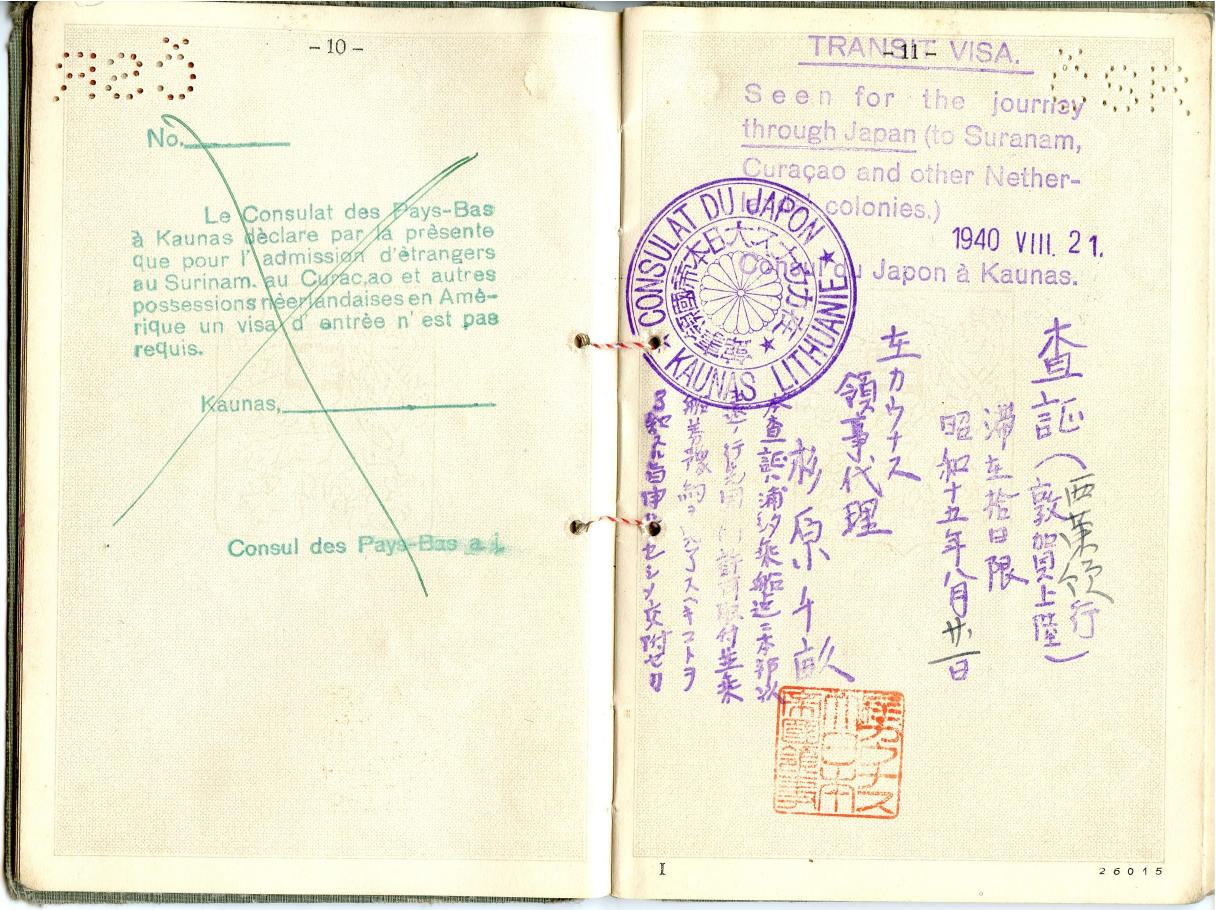 - 10 -
ČSR
No.
Le Consulat des Pays-Bas
à Kaunas dèclare par la prèsente
que pour l' admission d'ètrangers
au Surinam. au Curac,ao et autres
possessions nèerlandaises en Amè-
rique un visa d' entrèe n' est pas
requis.
Kaunas,
Consul des Pays-Bas a.i.
- 11 -
ČSR
TRANSIT VISA.
Seen for the journey
through Japan (to Suranam,
Curaçao and other Nether-
colonies.)
1940 VIII. 21.
Consul du Japon à Kaunas.
CONSULAT DU JAPON
KAUNAS LITHUANIE
査証（敦賀上陸）
行
滞在拾日限
昭和十五年八月廿一日
在カウナス
領事代理
杉原千畝
本査証ハ浦汐乗船迄ニ本邦以
行 許可取付 乗
船 予約 完了スベキコトヲ
セシメ交附セリ
I
26015